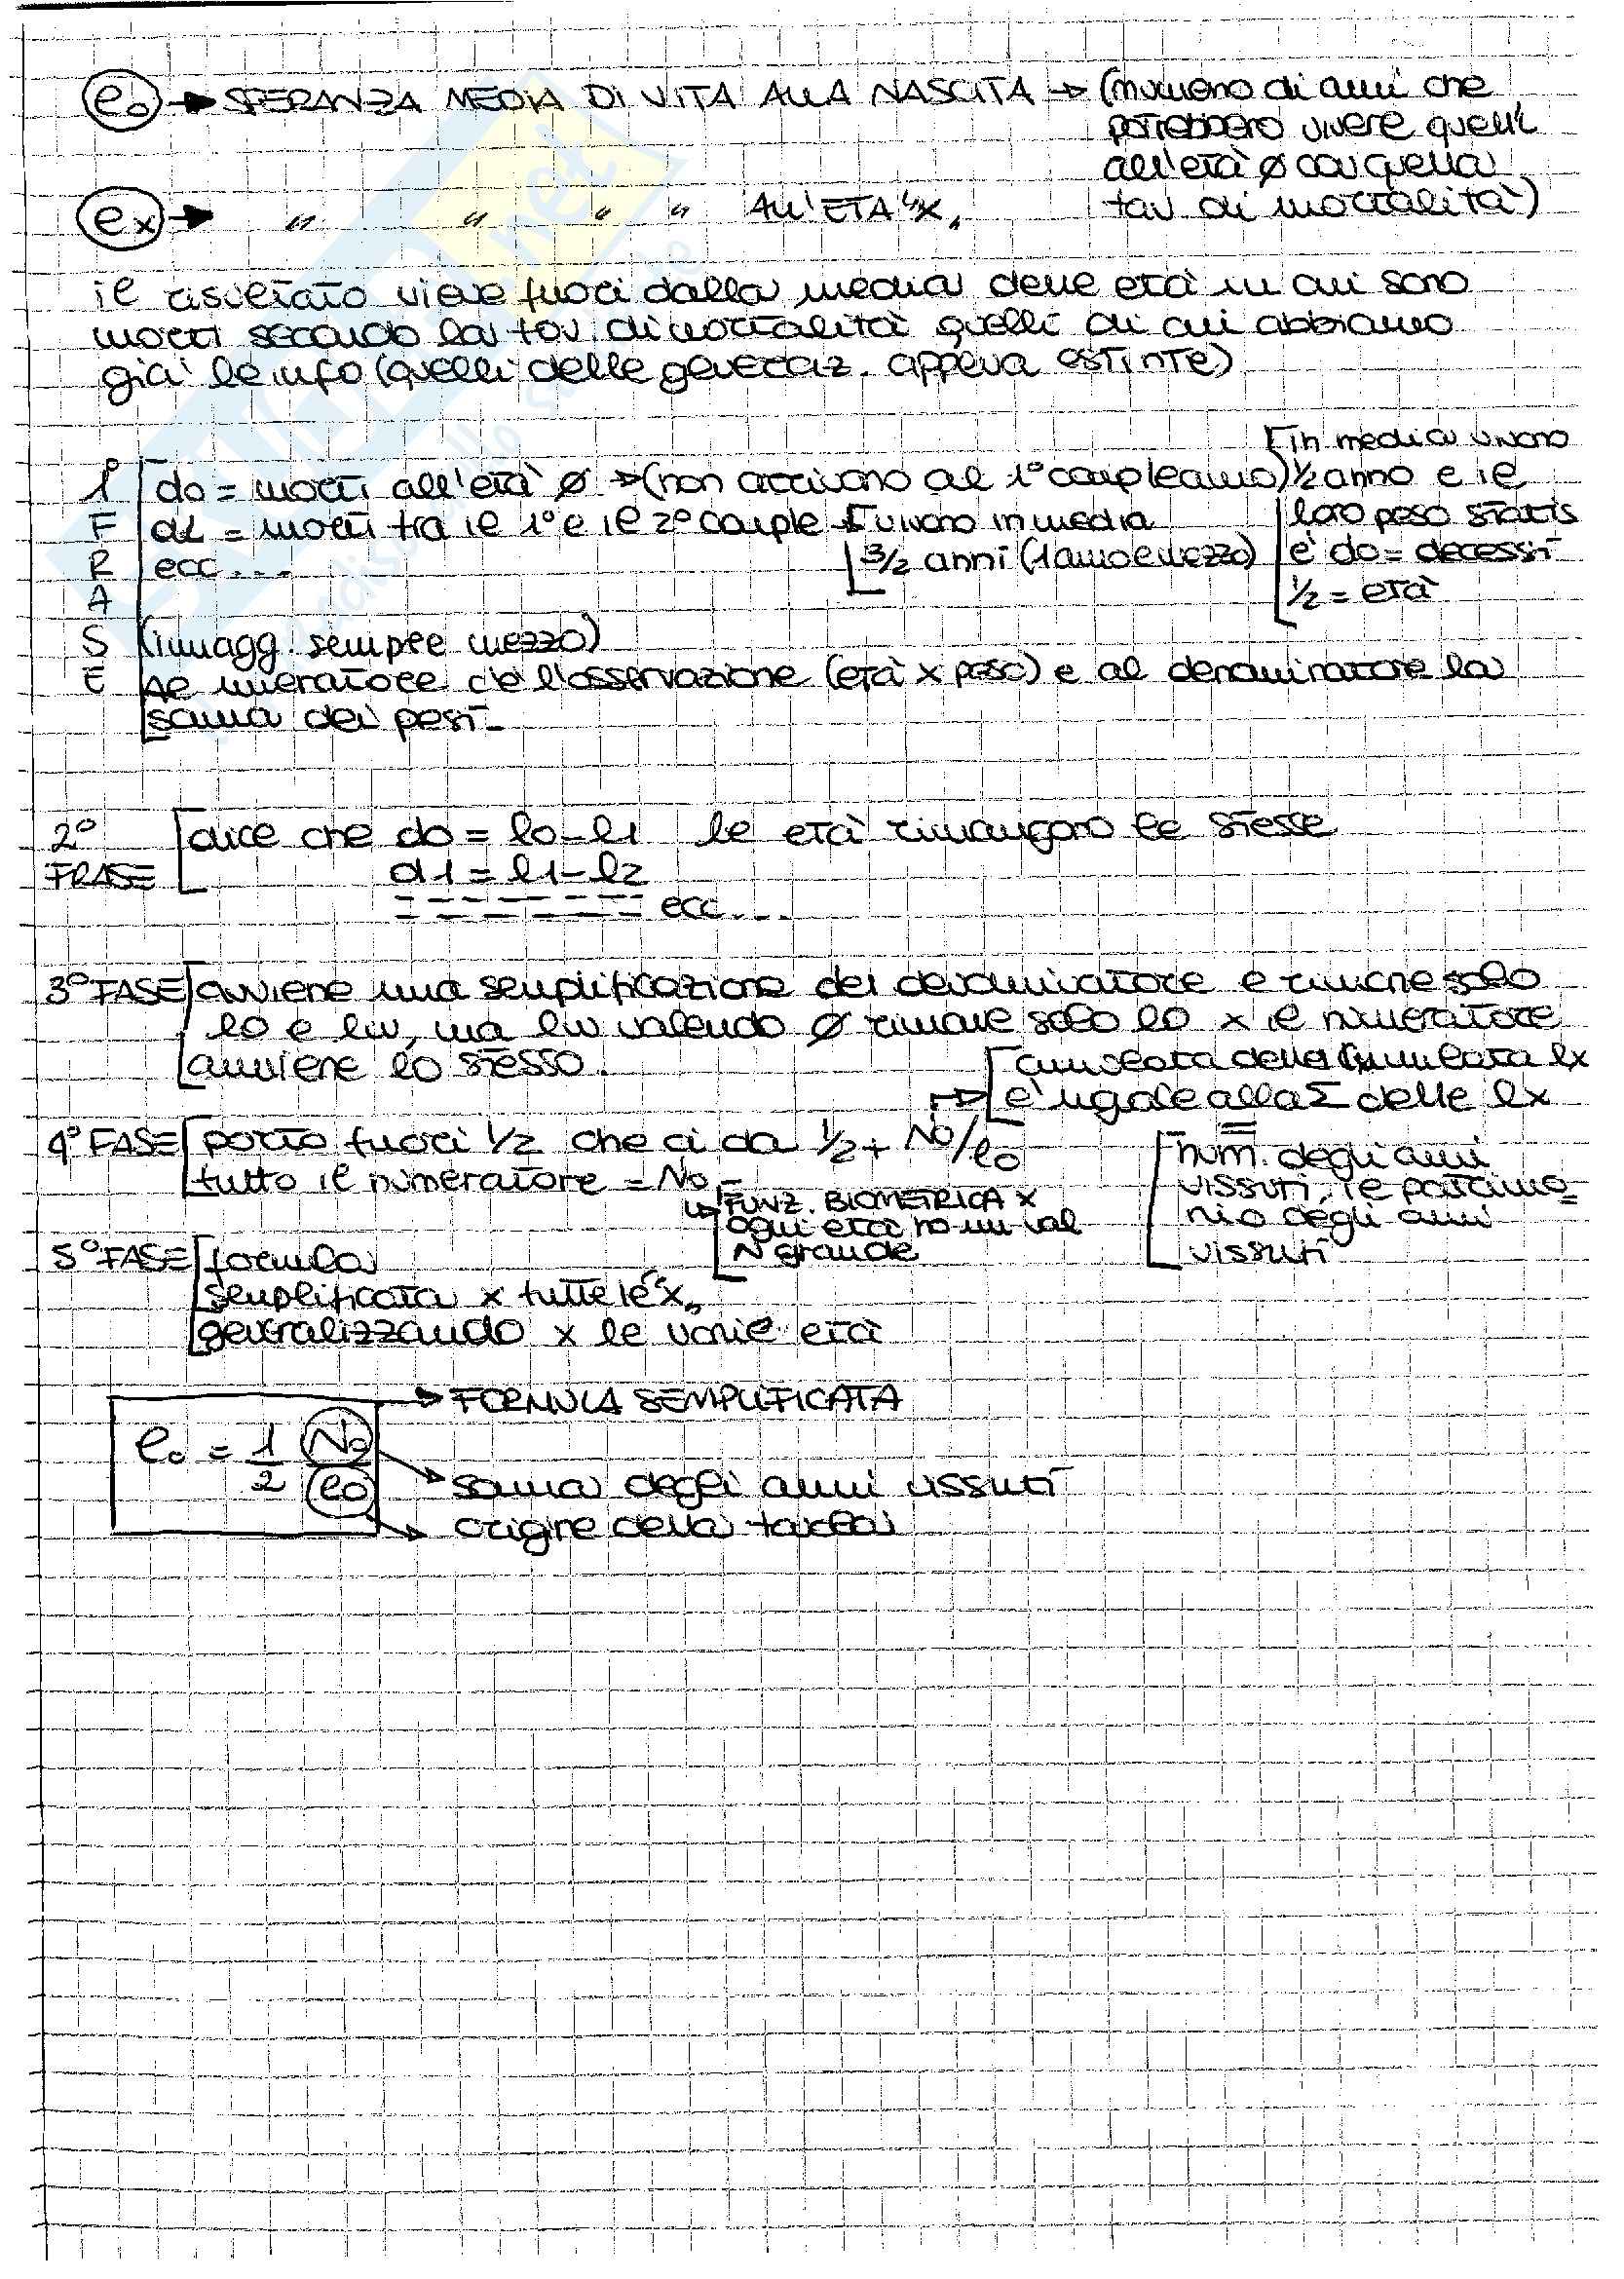 e0 → SPERANZA MEDIA DI VITA ALLA NASCITA → (numero di anni che
potrebbero vivere quelli
all'età ø con quella
tav di mortalità)
ex → " " " " ALL'ETÀ "x"
il risultato viene fuori dalla media delle età in cui sono
morti secondo la tav. di mortalità quelli di cui abbiamo
già le info (quelli delle generaz. appena estinte)
1° FRASE
do = morti all'età ø → (non arrivano al 1° compleanno)
in media vivono
1/2 anno e il
loro peso statis
è do = decessi
1/2 = età
d1 = morti tra il 1° e il 2° comple →
vivono in media
3/2 anni (1 anno e mezzo)
ecc ...
(immagg. sempre mezzo)
Al numeratore c'è l'osservazione (età x peso) e al denominatore la
somma dei pesi
2° FRASE
dice che do = l0-l1 le età rimangono le stesse
d1 = l1-l2
ecc ...
3° FASE
avviene una semplificazione del denominatore e rimane solo
l0 e lw, ma lw valendo ø rimane solo l0 x il numeratore
avviene lo stesso.
→ cumulata della cumulata lx
è uguale alla Σ delle lx
4° FASE
porto fuori 1/2 che ci da 1/2 + No/lo
tutto il numeratore = No
→ FUNZ. BIOMETRICA x
ogni età ho un val
N grande
num. degli anni
vissuti, il patrimo=
nio degli anni
vissuti
5° FASE
formula
semplificata x tutte le "x"
generalizzando x le varie età
→ FORMULA SEMPLIFICATA
e0 = 1/2 No/lo
→ somma degli anni vissuti
→ origine della tavola